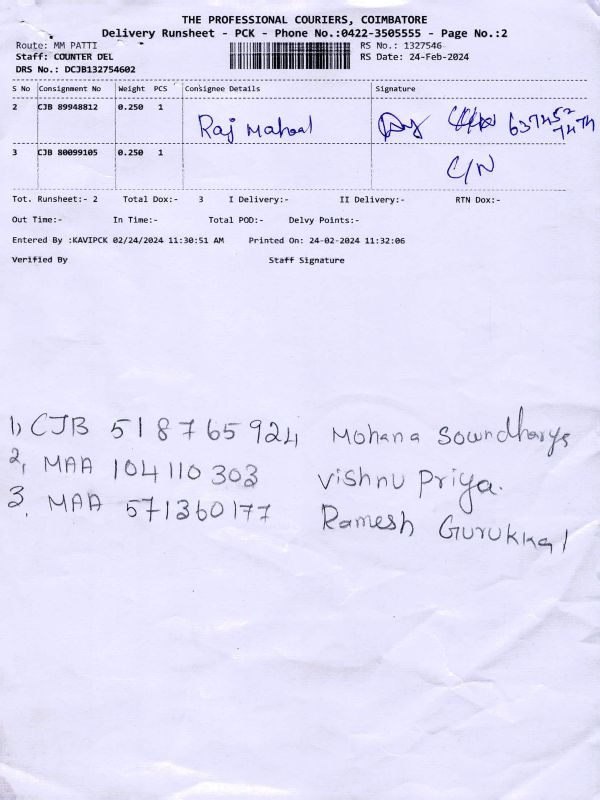 THE PROFESSIONAL COURIERS, COIMBATORE
Delivery Runsheet - PCK - Phone No.:0422-3505555 - Page No.:2
Route: MM PATTI RS No.: 1327546
Staff: COUNTER DEL RS Date: 24-Feb-2024
DRS No.: DCJB132754602
S No Consignment No Weight PCS Consignee Details Signature
2 CJB 89948812 0.250 1
Raj Mahaal 637452
7474
3 CJB 80099105 0.250 1
C/N
Tot. Runsheet:- 2 Total Dox:- 3 I Delivery:- II Delivery:- RTN Dox:-
Out Time:- In Time:- Total POD:- Delvy Points:-
Entered By :KAVIPCK 02/24/2024 11:30:51 AM Printed On: 24-02-2024 11:32:06
Verified By Staff Signature
1, CJB 518765924 Mohana Soundharya
2, MAA 104110303 Vishnu Priya.
3. MAA 571360177 Ramesh Gurukkal